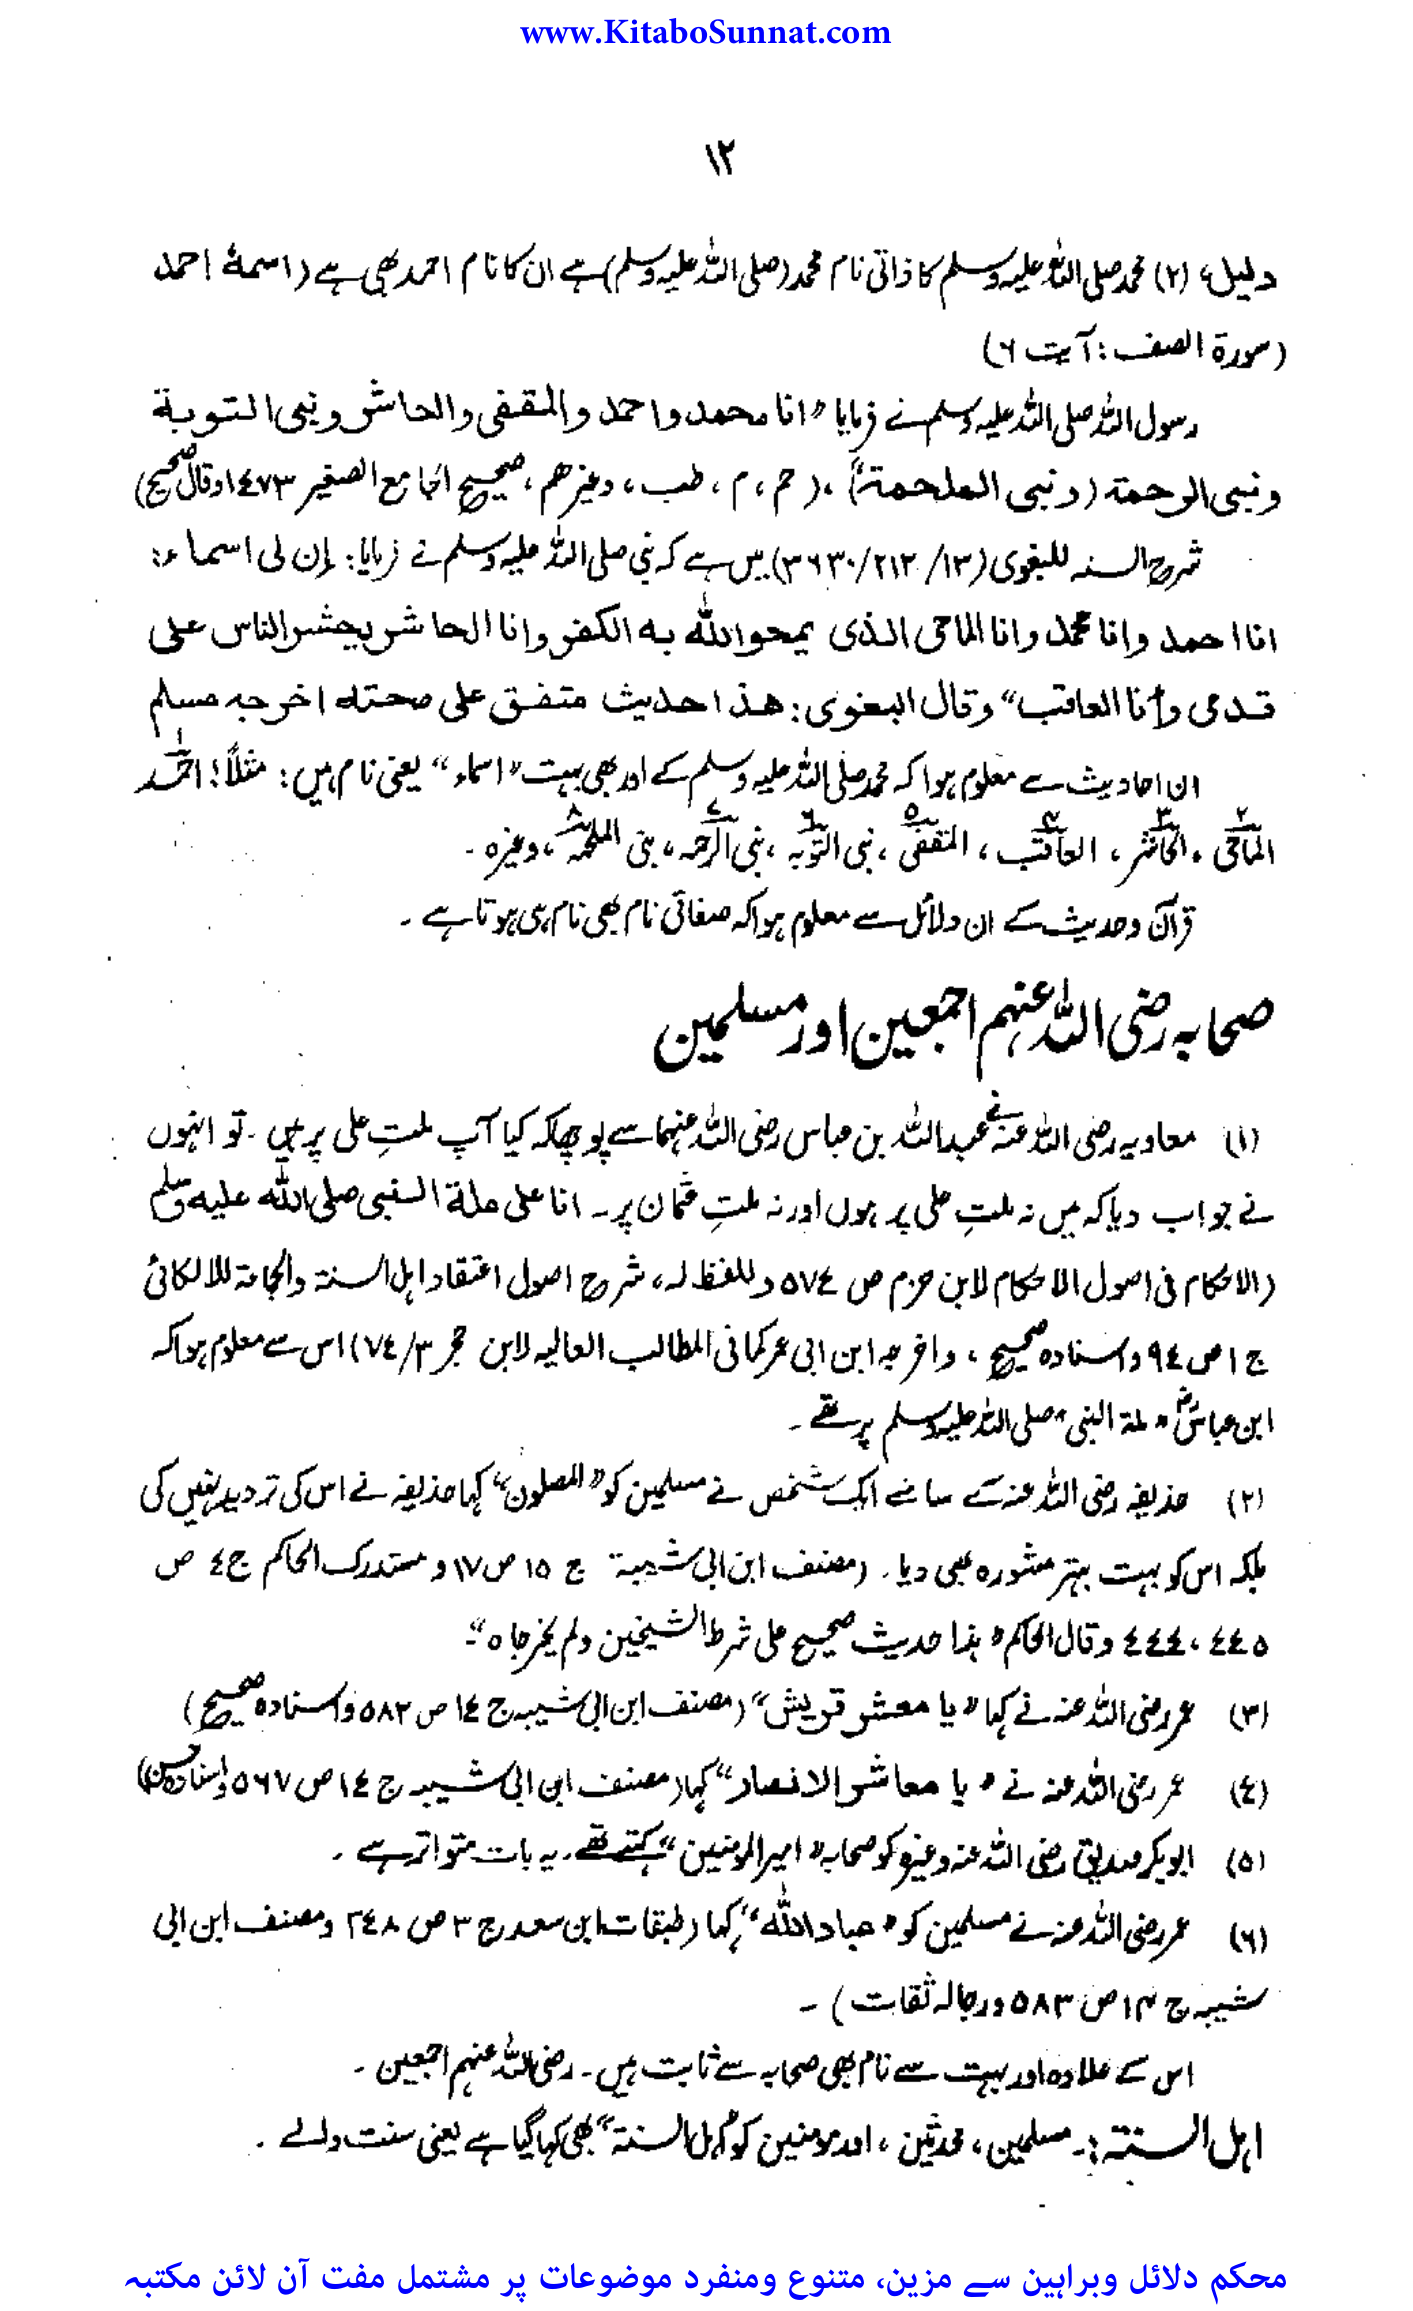 www.KitaboSunnat.com
۱۲
دلیل، (۲) محمد صلی اللہ علیہ وسلم کا ذاتی نام محمد (صلی اللہ علیہ وسلم) ہے ان کا نام احمد بھی ہے (اسمهٔ احمد
(سورۃ الصف : آیت ۶)
رسول اللہ صلی اللہ علیہ وسلم نے فرمایا "انا محمد واحمد والمقفی والحاشر ونبی التوبة
ونبی الرحمة (ونبی الملحمة)"، (حم، م، طب، وغیرهم، صحیح الجامع الصغیر ١٤٧٣ وقال صحیح)
شرح السنہ للبغوی (۱۳/ ۲۱۲/ ۳۶۳۰) میں ہے کہ نبی صلی اللہ علیہ وسلم نے فرمایا: إن لی اسماء:
انا احمد وانا محمد وانا الماحی الذی یمحو اللہ به الکفر وانا الحاشر یحشر الناس علی
قدمی وأنا العاقب" وقال البغوی: هذا حدیث متفق علی صحته اخرجه مسلم
ان احادیث سے معلوم ہوا کہ محمد صلی اللہ علیہ وسلم کے اور بھی بہت "اسماء" یعنی نام ہیں: مثلاً! احمد۱
الماحی۲، الحاشر۳، العاقب۴، المقفی۵، نبی التوبہ۶، نبی الرحمہ۷، نبی الملحمہ۸، وغیرہ ۔
قرآن وحدیث کے ان دلائل سے معلوم ہوا کہ صفاتی نام بھی نام ہی ہوتا ہے ۔
صحابہ رضی اللہ عنہم اجمعین اور مسلمین
(۱) معاویہ رضی اللہ عنہ نے عبداللہ بن عباس رضی اللہ عنہما سے پوچھا کہ کیا آپ ملتِ علی پر ہیں ۔ تو انہوں
نے جواب دیا کہ میں نہ ملتِ علی پر ہوں اور نہ ملتِ عثمان پر ۔ انا علی ملة النبی صلی اللہ علیه وسلم
(الاحکام فی اصول الاحکام لابن حزم ص ٥٧٤ وللفظ لہ، شرح اصول اعتقاد اہل السنۃ والجماعۃ للالکائی
ج ۱ ص ٩٤ واسنادہ صحیح، واخرجہ ابن ابی عمر کما فی المطالب العالیہ لابن حجر ٧٤/٣) اس سے معلوم ہوا کہ
ابن عباسؓ "ملۃ النبی" صلی اللہ علیہ وسلم پر تھے ۔
(۲) حذیفہ رضی اللہ عنہ کے سامنے ایک شخص نے مسلمین کو "المصلون" کہا حذیفہ نے اس کی تردید نہیں کی
بلکہ اس کو بہت بہتر مشورہ بھی دیا ۔ (مصنف ابن ابی شیبۃ ج ۱۵ ص ۱۷ و مستدرک الحاکم ج ٤ ص
٤٤٤، ٤٤٥ وقال الحاکم "ہذا حدیث صحیح علی شرط الشیخین ولم یخرجاہ"۔
(۳) عمر رضی اللہ عنہ نے کہا "یا معشر قریش" (مصنف ابن ابی شیبہ ج ١٤ ص ٥٨٢ واسنادہ صحیح)
(٤) عمر رضی اللہ عنہ نے "یا معاشر الانصار" کہا (مصنف ابن ابی شیبہ ج ١٤ ص ٥٦٧ واسنادہ حسن)
(۵) ابوبکر صدیق رضی اللہ عنہ وغیرہ کو صحابہ "امیر المومنین" کہتے تھے ۔ یہ بات متواتر ہے ۔
(۶) عمر رضی اللہ عنہ نے مسلمین کو "عباد اللہ" کہا (طبقات ابن سعد ج ۳ ص ٢٤٨ ومصنف ابن ابی
شیبہ ج ۱۴ ص ۵۸۳ ورجالہ ثقات) ۔
اس کے علاوہ اور بہت سے نام بھی صحابہ سے ثابت ہیں ۔ رضی اللہ عنہم اجمعین ۔
اہل السنۃ :۔ مسلمین، محدثین، اور مومنین کو "اہل السنۃ" بھی کہا گیا ہے یعنی سنت والے ۔
محکم دلائل وبراہین سے مزین، متنوع ومنفرد موضوعات پر مشتمل مفت آن لائن مکتبہ